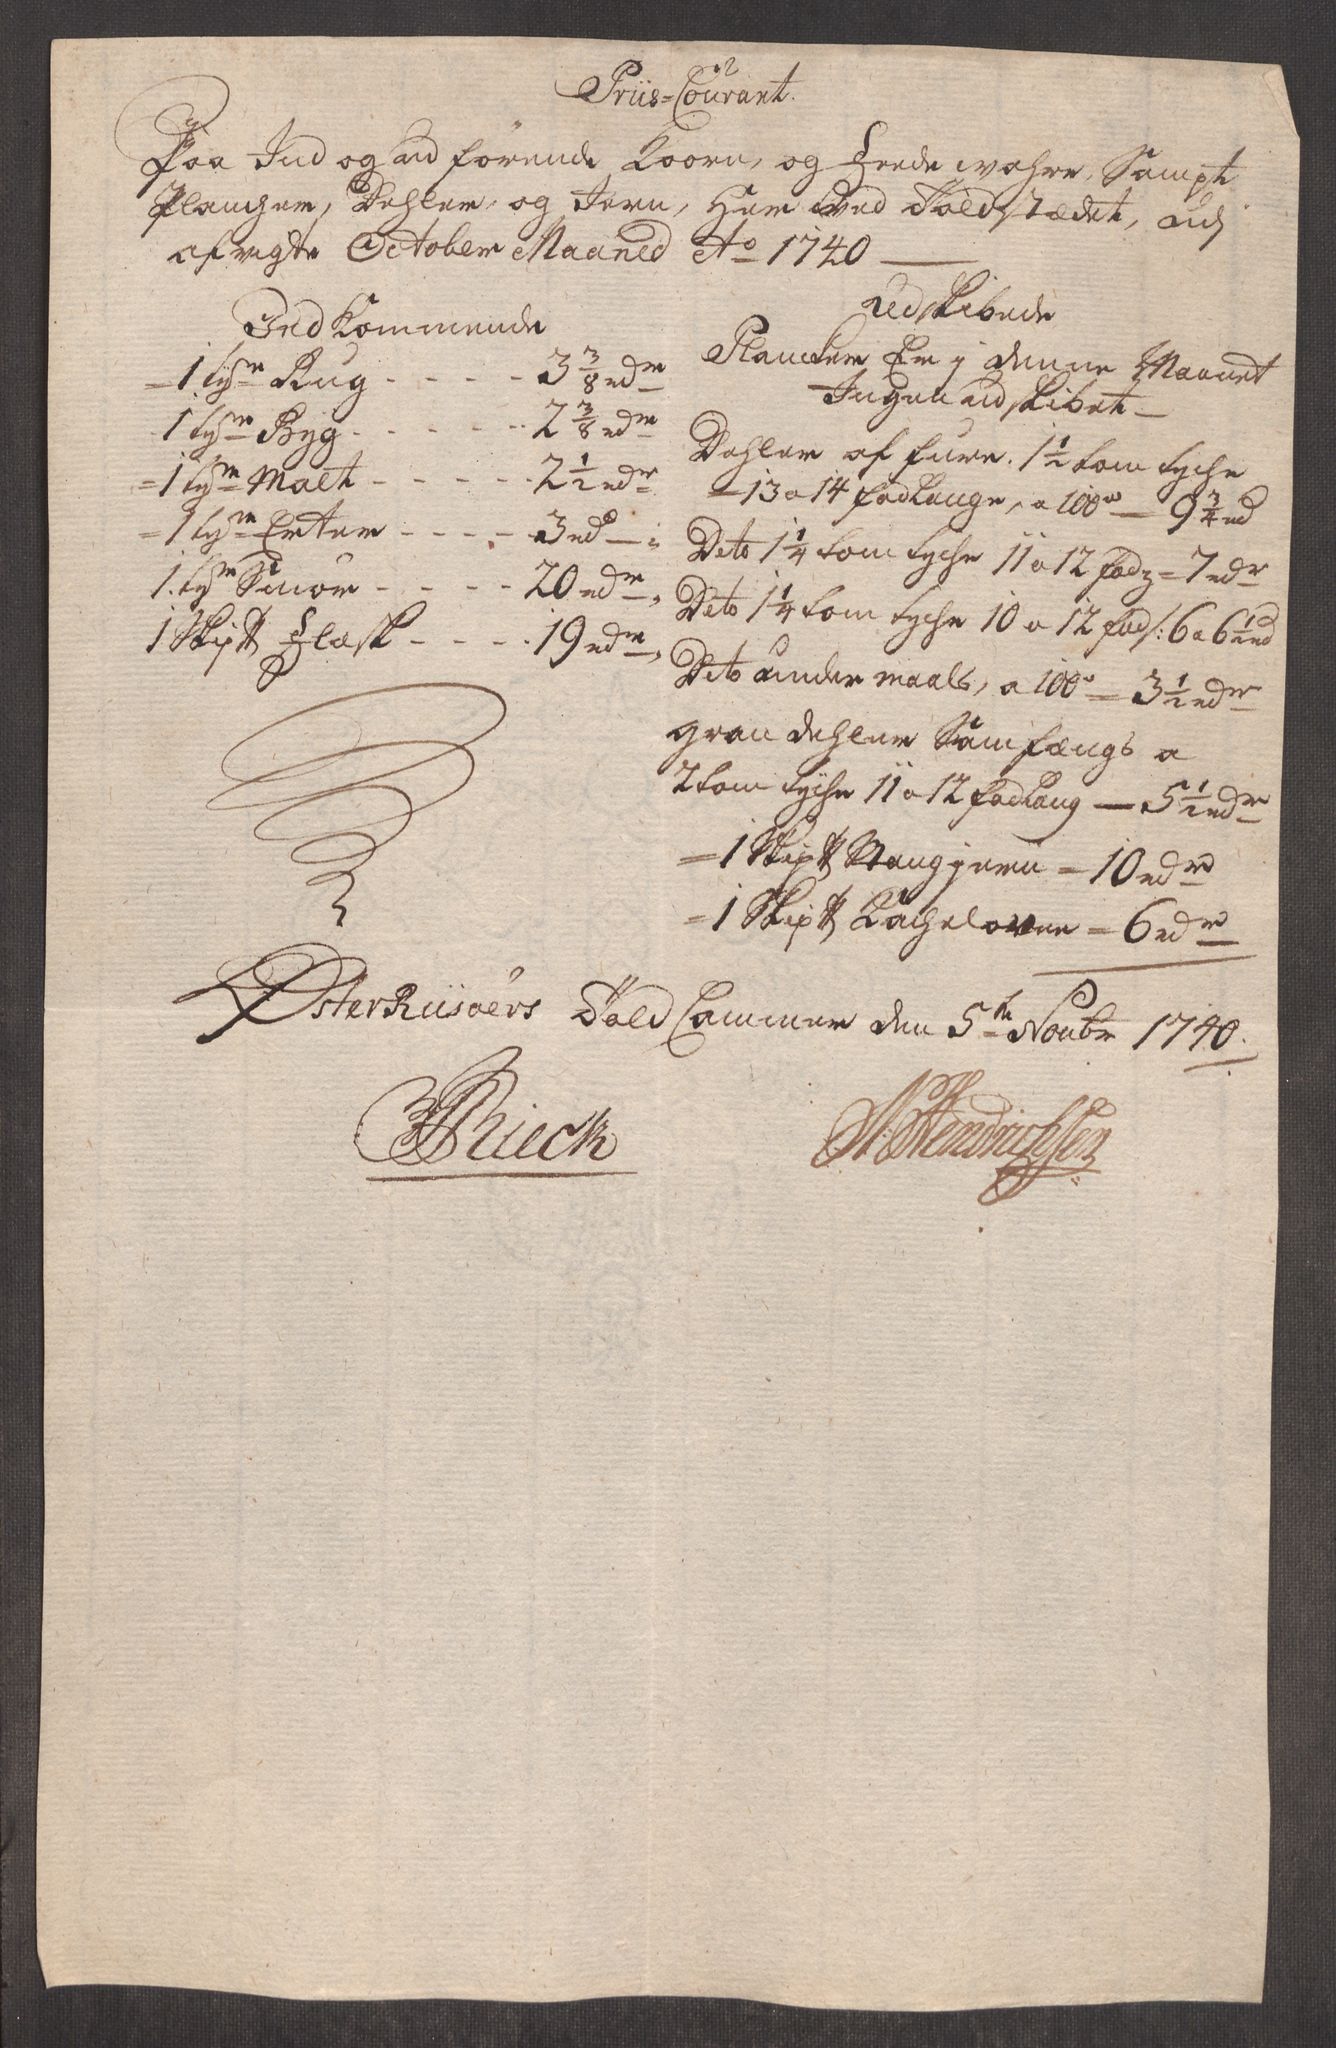 Priis=Courant.
Paa Ind og ud förende Koorn, og Feede wahre, Sampt
Plancher, Dehler, og Jern, Her wed Toldstædet, udj
afvigte October Maaned Ao 1740
Ind Kommende
1 tynn Rug - - - - 3 3/8 rdr
1 tynn Byg - - - - - 2 3/8 rdr
1 tynn Malt - - - - - 2 1/2 rdr
1 tynn Erter - - - - 3 rd
1 tynn Smör - - - - 20 rdr
1 Skip℔ Flæsk - - - - 19 rdr
Udskibede
Plancker Er j denne Maanet
Ingen udskibet
Dehler af fure 1 1/2 tom tyche
13 a 14 fod lange, a 100 9 3/4 rd
Dito 1 1/4 tom tyche 11 a 12 fod = 7 rdr
Dito 1 1/4 tom tyche 10 a 12 fod 6 a 6 1/2 rd
Dito under maals, a 100 = 3 1/2 rdr
gran dehler Samfængs a
2 tom tyche 11 a 12 fod lang — 5 1/2 rdr
= 1 Skip℔ Stangjern = 10 rdr
= 1 Skip℔ Kachelovne = 6 rdr
ØsterRiisøers Told Cammer den 5te Novbr 1740.
Rieck
N: Hendrichsen